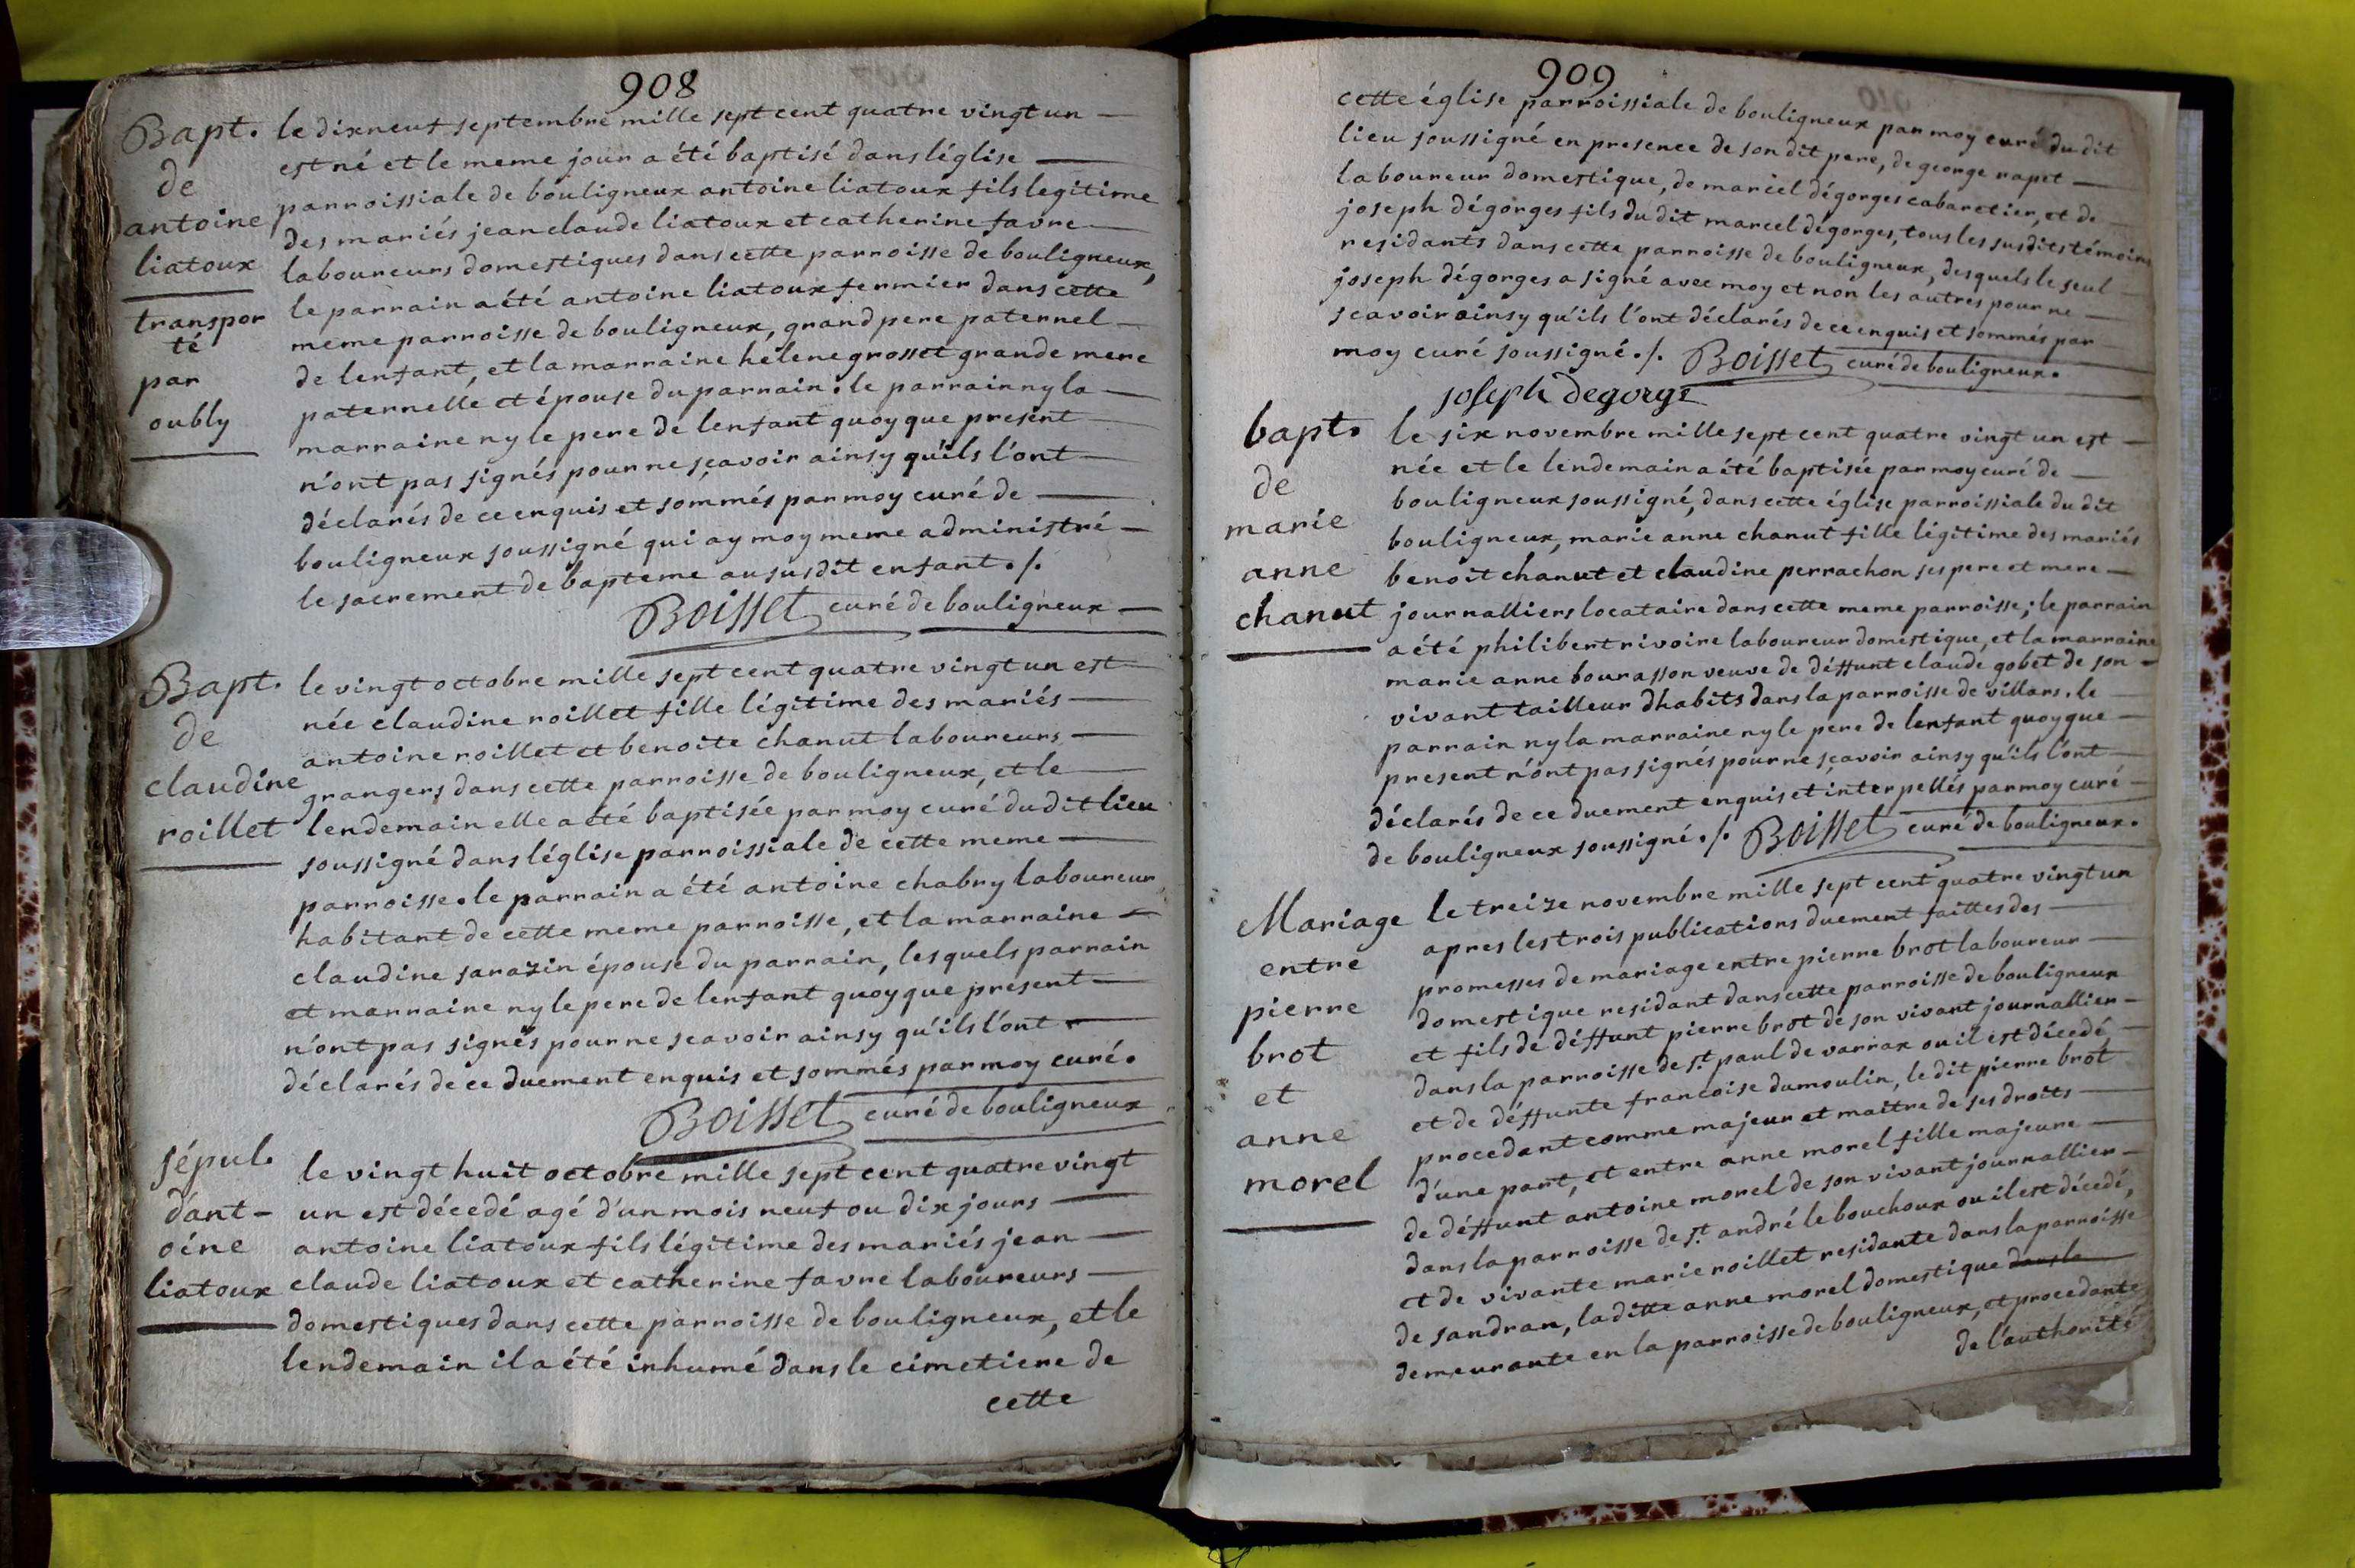 908
Bapt.
de
antoine
liatoux
transpor
té
par
oubly
le dixneuf septembre mille sept cent quatre vingt un
est né et le meme jour a été baptisé dans léglise
parroissiale de bouligneux antoine liatoux fils legitime
des mariés jean claude liatoux et catherine favre
laboureurs domestiques dans cette parroisse de bouligneux,
le parrain a été antoine liatoux fermier dans cette
meme parroisse de bouligneux, grand pere paternel
de lenfant, et la marraine hélene grosset grande mere
paternelle et épouse du parrain. le parrain ny la
marraine ny le pere de lenfant quoyque present
n'ont pas signés pour ne sçavoir ainsy qu'ils l'ont
déclarés de ce enquis et sommés par moy curé de
bouligneux soussigné qui ay moy meme administré
le sacrement de bapteme au susdit enfant ./.
Boisset curé de bouligneux
Bapt.
de
claudine
roillet
le vingt octobre mille sept cent quatre vingt un est
née claudine roillet fille légitime des mariés
antoine roillet et benoite chanut laboureurs
grangers dans cette parroisse de bouligneux, et le
lendemain elle a été baptisée par moy curé du dit lieu
soussigné dans léglise parroissiale de cette meme
parroisse. le parrain a été antoine chabry laboureur
habitant de cette meme parroisse, et la marraine
claudine sarazin épouse du parrain, lesquels parrain
et marraine ny le pere de lenfant quoyque present
n'ont pas signés pour ne scavoir ainsy qu'ils l'ont
déclarés de ce duement enquis et sommés par moy curé.
Boisset curé de bouligneux
sépul.
dant-
oine
liatoux
le vingt huit octobre mille sept cent quatre vingt
un est décedé agé d'un mois neuf ou dix jours
antoine liatoux fils légitime des mariés jean
claude liatoux et catherine favre laboureurs
domestiques dans cette parroisse de bouligneux, et le
lendemain il a été inhumé dans le cimetiere de
cette
909
cette église parroissiale de bouligneux par moy curé du dit
lieu soussigné en presence de son dit pere, de george rapet
laboureur domestique, de marcel dégorges cabaretier, et de
joseph dégorges fils du dit marcel dégorges, tous les susdits témoins
residants dans cette parroisse de bouligneux, desquels le seul
joseph dégorges a signé avec moy et non les autres pour ne
scavoir ainsy qu'ils l'ont déclarés de ce enquis et sommés par
moy curé soussigné ./. Boisset curé de bouligneux.
joseph Degorge
bapt.
de
marie
anne
chanut
le six novembre mille sept cent quatre vingt un est
née et le lendemain a été baptisée par moy curé de
bouligneux soussigné, dans cette église parroissiale du dit
bouligneux, marie anne chanut fille légitime des mariés
benoit chanut et claudine perrachon ses pere et mere
journalliers locataire dans cette meme parroisse; le parrain
a été philibert rivoire laboureur domestique, et la marraine
marie anne bourasson veuve de déffunt claude gobet de son
vivant tailleur dhabits dans la parroisse de villars. le
parrain ny la marraine ny le pere de lenfant quoyque
present n'ont pas signés pour ne sçavoir ainsy qu'ils l'ont
déclarés de ce duement enquis et interpellés par moy curé
de bouligneux soussigné ./. Boisset curé de bouligneux.
Mariage
entre
pierre
brot
et
anne
morel
le treize novembre mille sept cent quatre vingt un
apres les trois publications duement faittes des
promesses de mariage entre pierre brot laboureur
domestique residant dans cette parroisse de bouligneux
et fils de déffunt pierre brot de son vivant journallier
dans la parroisse de st. paul de varrax ou il est décedé
et de déffunte francoise dumoulin, le dit pierre brot
procedant comme majeur et maitre de ses droits
d'une part, et entre anne morel fille majeure
de déffunt antoine morel de son vivant journallier
dans la parroisse de st. andré le bouchoux ou il est décedé,
et de vivante marie roillet residante dans la parroisse
de sandran, la ditte anne morel domestique dans la
demeurante en la parroisse de bouligneux, et procedante
de l'authorité